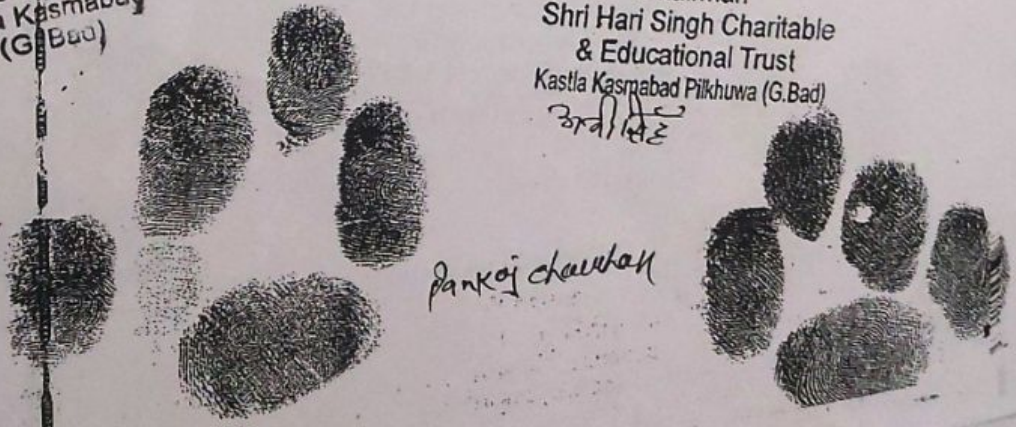 (G.Bad)
Shri Hari Singh Charitable
& Educational Trust
Kastla Kasmabad Pilkhuwa (G.Bad)
Pankaj chauhan